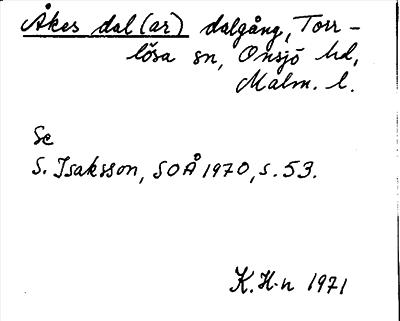 Åkes dal(ar) dalgång, Torr-
lösa sn, Onsjö hd,
Malm. l.
Se
S. Isaksson, SOÅ 1970, s. 53.
K. H-n 1971